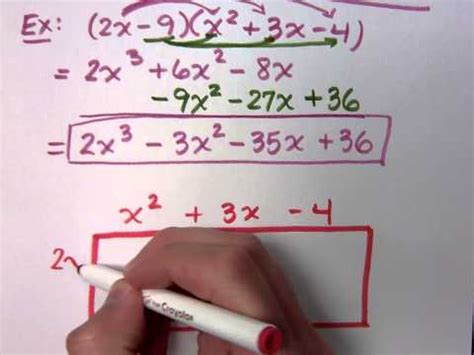 Ex: (2x-9)(x²+3x-4)
= 2x³+6x²-8x
-9x²-27x+36
= 2x³-3x²-35x+36
x² + 3x - 4
2x
Crayola